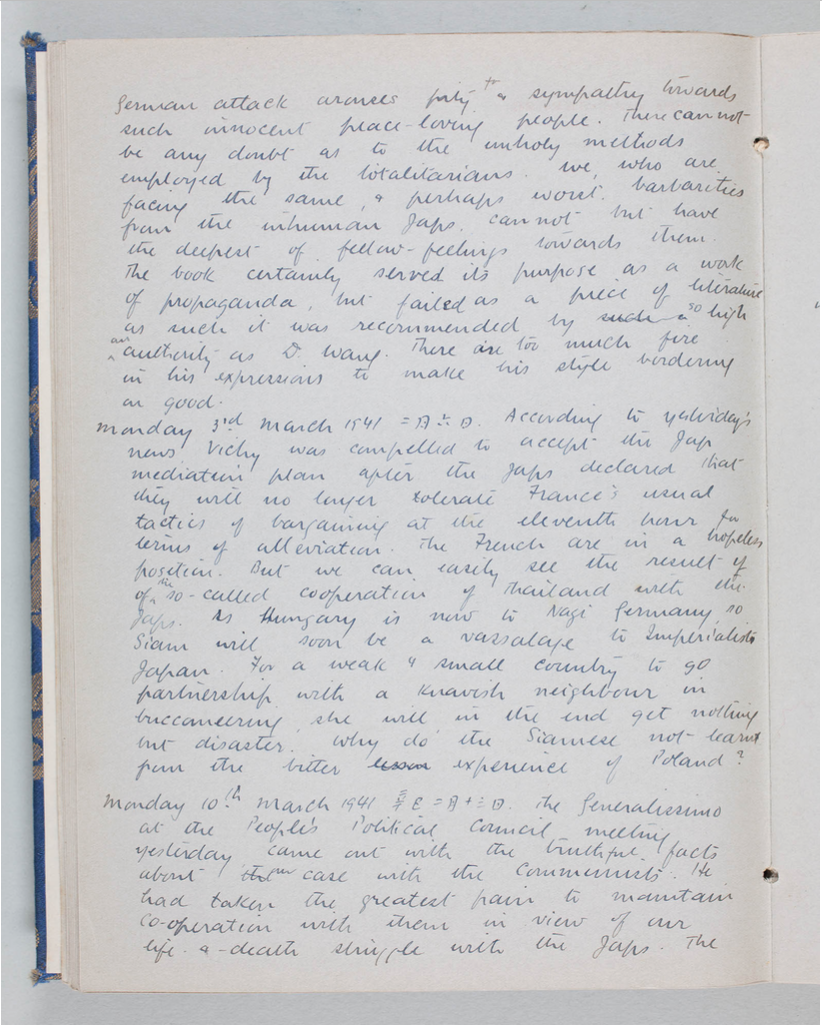 German attack arouses pity & sympathy towards
such innocent peace-loving people. There cannot
be any doubt as to the unholy methods
employed by the totalitarians. We, who are
facing the same, & perhaps worst, barbarities
from the inhuman Japs, can not but have
the deepest of fellow-feelings towards them.
The book certainly served its purpose as a work
of propaganda, but failed as a piece of literature
as such it was recommended by such a so high
an authority as D. Wang. There are too much fire
in his expressions to make his style bordering
on good.
Monday 3rd March 1941 = 日. According to yesterday's
news Vichy was compelled to accept the Jap
mediation plan after the Japs declared that
they will no longer tolerate France's usual
tactics of bargaining at the eleventh hour for
terms of alleviation. The French are in a hopeless
position. But we can easily see the result of
of the so-called cooperation of Thailand with the
Japs. As Hungary is now to Nazi Germany, so
Siam will soon be a vassalage to Imperialistic
Japan. For a weak & small country to go
partnership with a knavish neighbour in
buccaneering, she will in the end get nothing
but disaster. Why do the Siamese not learnt
from the bitter lesson experience of Poland?
Monday 10th March 1941 The Generalissimo
at the People's Political Council meeting
yesterday came out with the truthful facts
about the our case with the Communists. He
had taken the greatest pain to maintain
co-operation with them in view of our
life-&-death struggle with the Japs. The